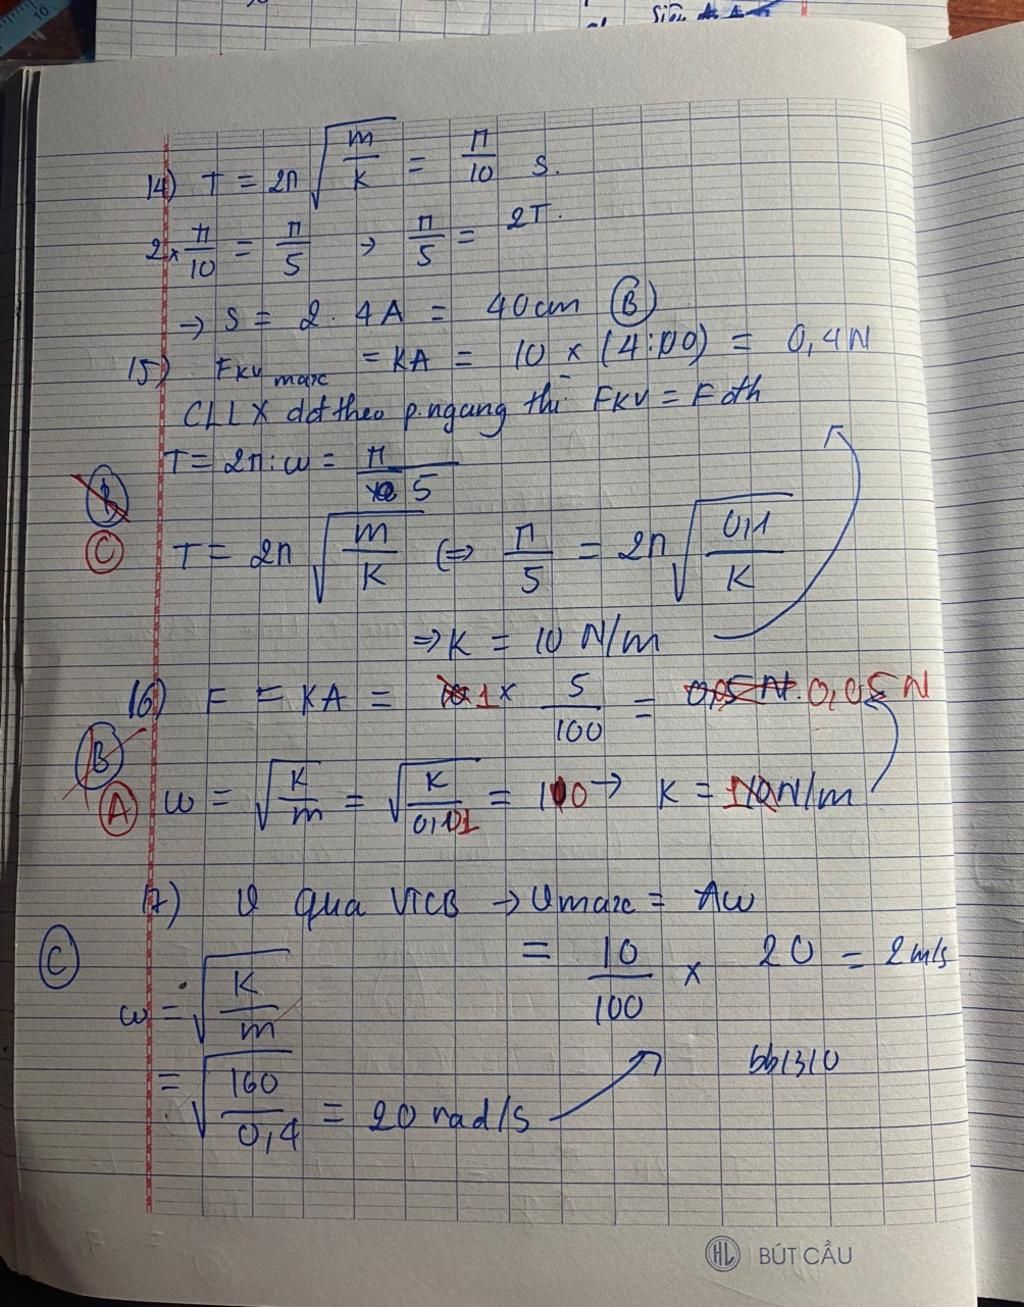 14) T = 2π √(m/K) = π/10 s.
2 × π/10 = π/5 → π/5 = 2T.
→ S = 2 . 4A = 40cm (B)
15) FKV marx = KA = 10 × (4:100) = 0,4N
CLLX dđ theo p.ngang thì FKV = Fđh
T = 2π : ω = π/5
(B)
(C) T = 2π √(m/K) (=) π/5 = 2π √(0,1/K)
⇒ K = 10 N/m
16) F = KA = 1 × 5/100 = 0,05N. 0,05N
(B)
(A) ω = √(K/m) = √(K/0,01) = 10 → K = 1 N/m
17) v qua VTCB → vmarx = Aω
(C) = 10/100 × 20 = 2m/s
ω = √(K/m)
= √(160/0,4) = 20 rad/s
bb1310
HL BÚT CẦU